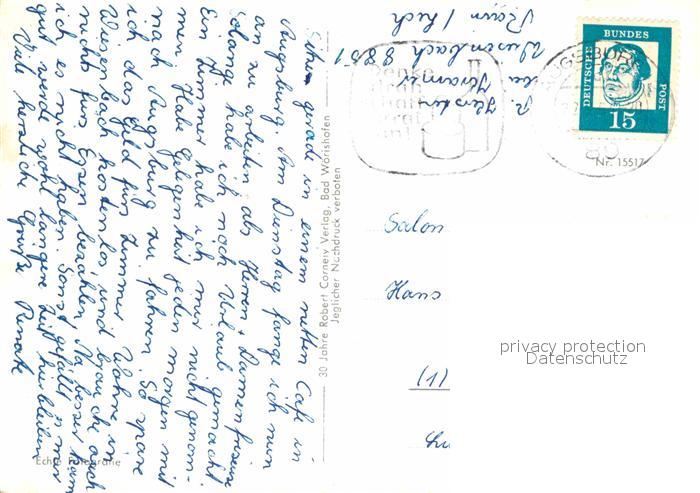 Sitze gerade in einem netten Cafe in
Augsburg. Am Dienstag fange ich nun
an zu arbeiten als Herren + Damenfriseur
Solang habe ich noch Urlaub gemacht.
Ein Zimmer habe ich mir nicht genom-
men. Habe Gelegenheit jeden morgen mit
nach Augsburg zu fahren. So spare
ich das Geld für Zimmer. Wohne in
Wiesenbach kostenlos und brauche auch
nicht fürs Essen bezahlen. Na, besser kann
ich es nicht haben. Sonst gefällt es mir
gut werde wohl längere Zeit hierbleiben
Viele herzliche Grüße Renate
Echte Fotografie
30 Jahre Robert Cornely Verlag, Bad Wörishofen
Jeglicher Nachdruck verboten
R.
bei
Wiesenbach 8851
Rain / Lech
DEUTSCHE
BUNDES
POST
15
AUGSBURG
89
Nr. 15517
Salon
Hans
(1)
privacy protection
Datenschutz